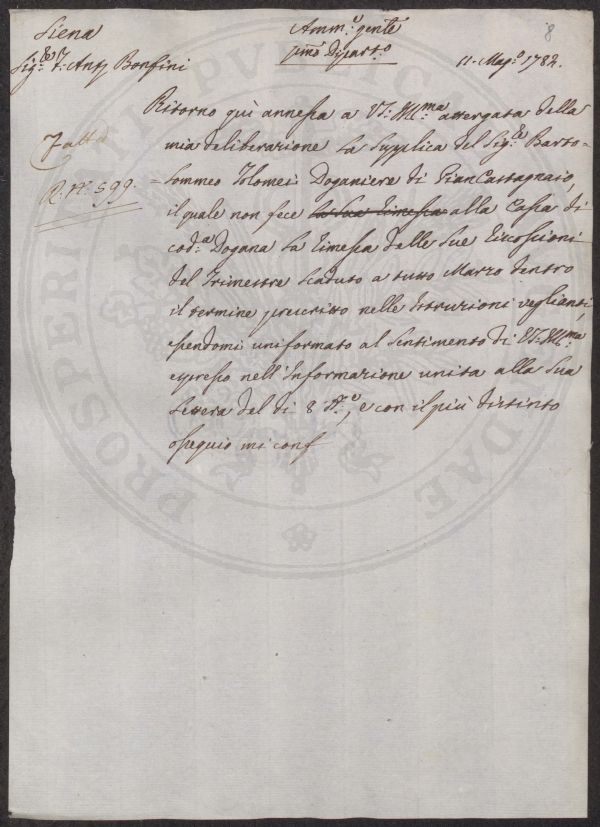 Siena
Amm.e gente
8
Sig.re F. Ant.o Bonfini
primo Dipart.o
11. Mag.o 1782.
Ritorno quì annessa a VS: Ill:ma attergata della
Fatta
mia deliberazione la supplica del Sig.re Barto=
R. N.º 599.
lommeo Tolomei Doganiere di Pian Castagnaio,
il quale non fece la sua rimessa alla Cassa di
cod.a Dogana la rimessa delle sue riscossioni
del Trimestre scaduto a tutto Marzo dentro
il termine prescritto nelle Istruzioni veglianti,
essendomi uniformato al sentimento di VS: Ill:ma
espresso nell'Informazione unita alla sua
Lettera del dì 8 d.o, e con il più distinto
ossequio mi conf
PROSPERITATI PUBLICAE